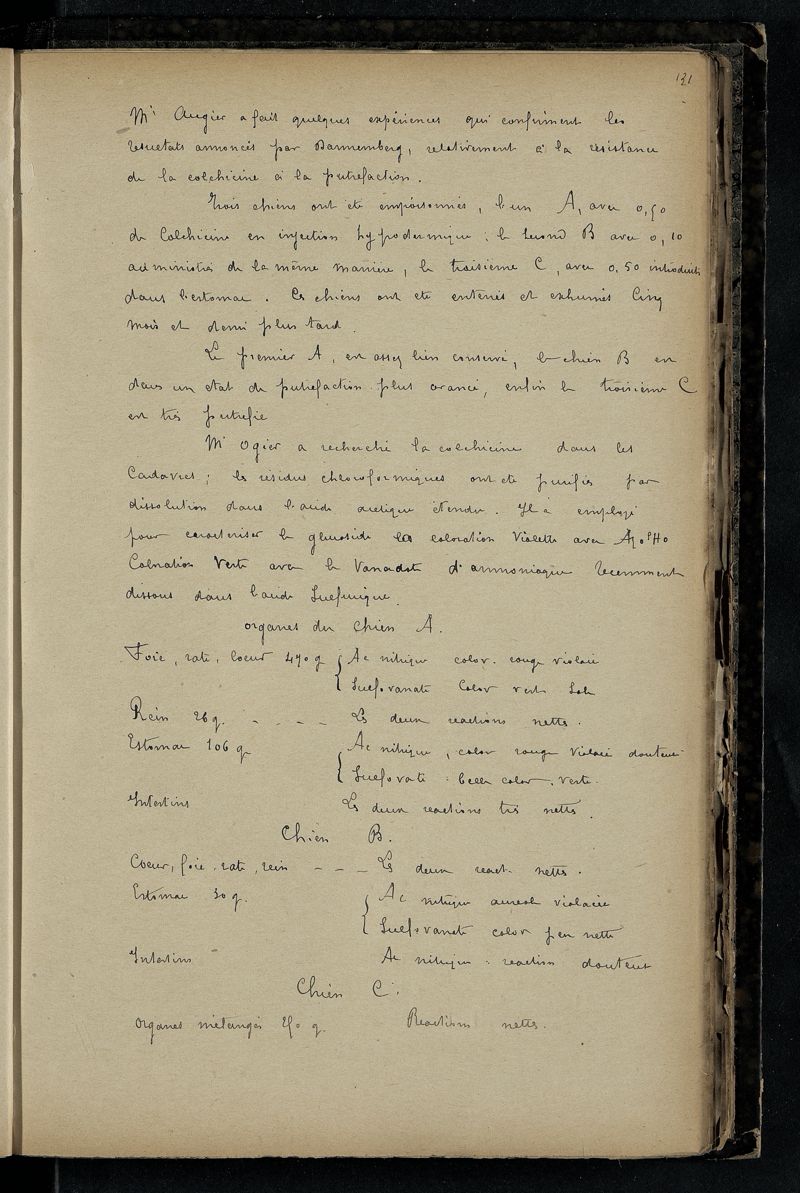 131
Mr Augier a fait quelques expériences qui confirment les
résultats annoncés par Dannemberg, relativement à la résistance
de la colchicine à la putréfaction.
Trois chiens ont été empoisonnés, l'un A, avec 0,50
de Colchicine en injection hypodermique ; le second B avec 0,10
administrés de la même manière, le troisième C, avec 0.50 introduits
dans l'estomac. Ces chiens ont été enterrés et exhumés Cinq
mois et demi plus tard.
Le premier A, est assez bien conservé, le chien B est
dans un état de putréfaction plus avancé, enfin le troisième C
est très putréfié
Mr Ogier a recherché la colchicine dans les
Cadavres ; les résidus chloroformiques ont été purifiés par
dissolution dans l'acide acétique étendu. Il a employé
pour caractériser le glucoside la coloration Violette avec AzO5HO
Coloration Verte avec le Vanadate d'ammoniaque récemment
dissous dans l'acide Sulfurique.
Organes du Chien A.
Foie, rate, Coeur 470 g { Ac nitrique color. rouge violacé
Sulfovanate Color verte Sale
Rein 26 g. - - - - Les deux réactions nettes.
Estomac 106 g { Ac nitrique, color rouge Violacé douteuse
Sulfovate : belle color. verte.
Intestins Les deux réactions très nettes.
Chien B.
Coeur, foie, rate, rein - - - Les deux react. nettes.
Estomac 30 g. { Ac nitrique auréole violacée
Sulfovanate color peu nette
Intestins Ac nitrique : réaction douteuse
Chien C.
Organes mélangés 250 g. Réactions nettes.